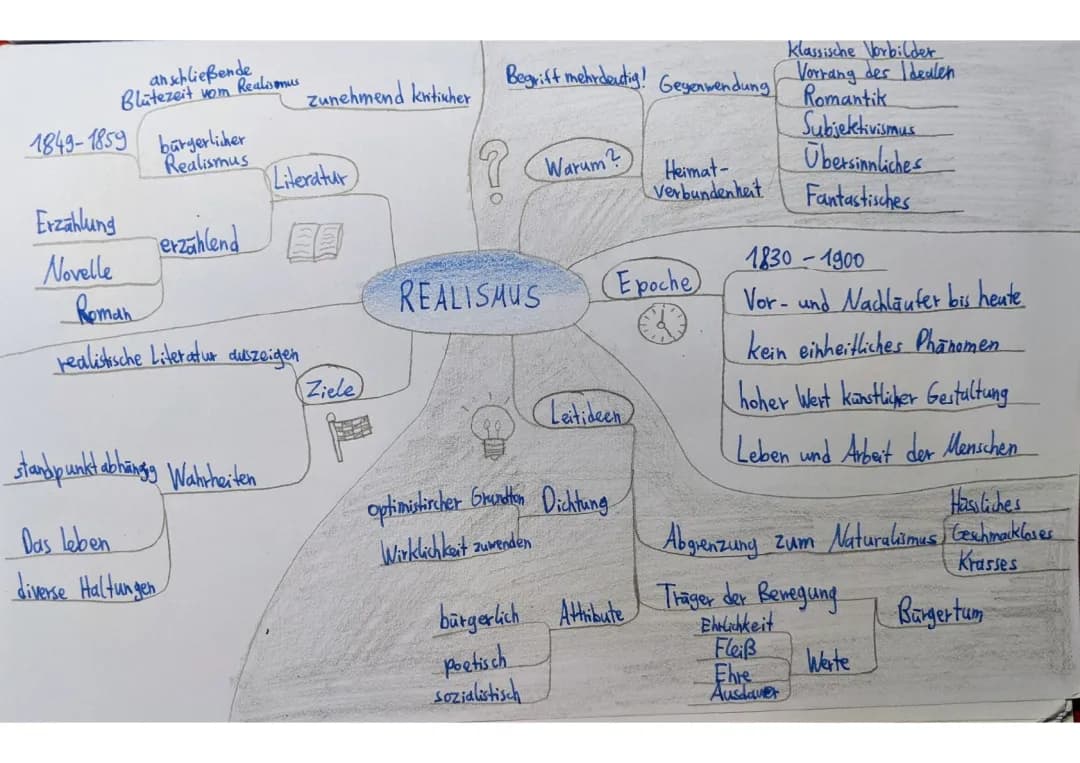 REALISMUS
Literatur
bürgerlicher
Realismus
1849-1859
anschließende
Blütezeit vom Realismus
zunehmend kritischer
erzählend
Erzählung
Novelle
Roman
?
Warum?
Begriff mehrdeutig!
Gegenwendung
klassische Vorbilder
Vorrang des Idealen
Romantik
Subjektivismus
Übersinnliches
Fantastisches
Heimat-
verbundenheit
Epoche
1830 - 1900
Vor- und Nachläufer bis heute
kein einheitliches Phänomen
hoher Wert künstlicher Gestaltung
Leben und Arbeit der Menschen
Ziele
realistische Literatur aufzeigen
Wahrheiten
standpunktabhängig
Das leben
diverse Haltungen
Leitideen
Dichtung
optimistischer Grundton
Wirklichkeit zuwenden
Abgrenzung zum Naturalismus
Hässliches
Geschmackloses
Krasses
Attribute
bürgerlich
poetisch
sozialistisch
Träger der Bewegung
Bürgertum
Werte
Ehrlichkeit
Fleiß
Ehre
Ausdauer